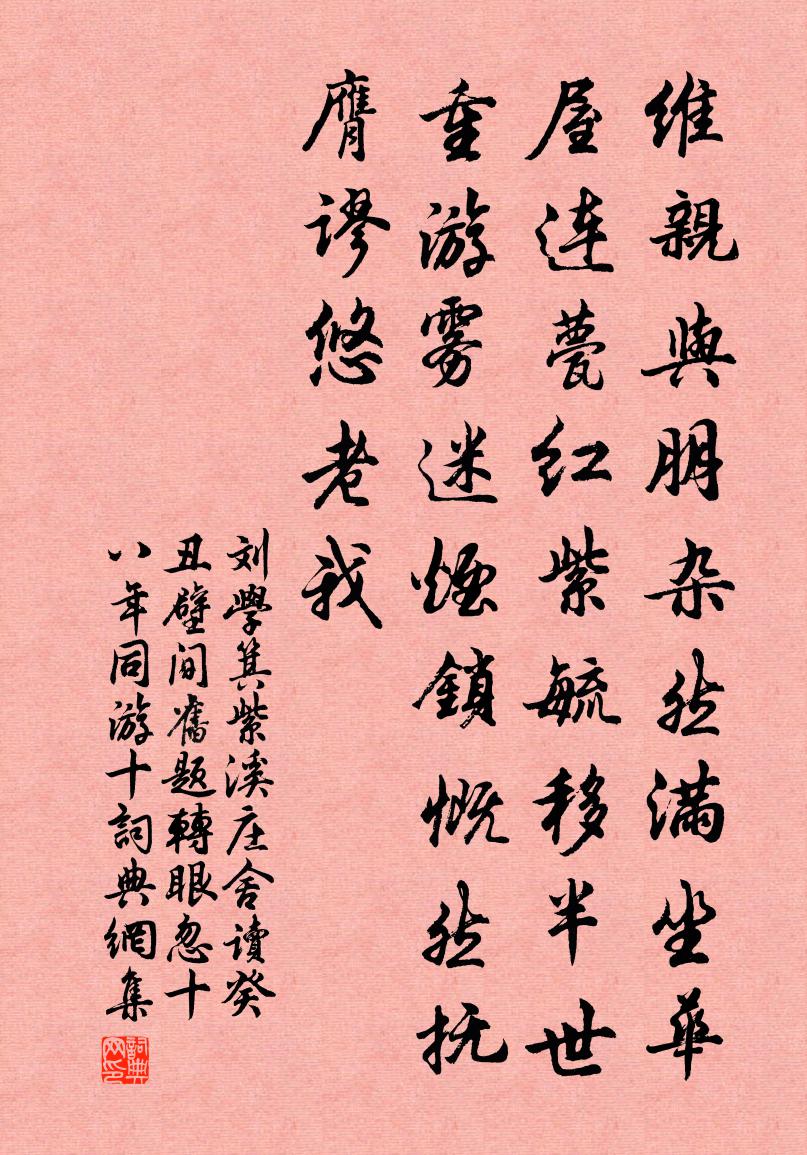 维親與朋杂然满坐華
屋连甍红紫毓移半世
重游雾迷煙鎖慨然抚
膺谬悠老我
刘學箕紫溪庄舍讀癸
丑壁间舊题轉眼忽十
八年同游十詞典網集
詞典网印